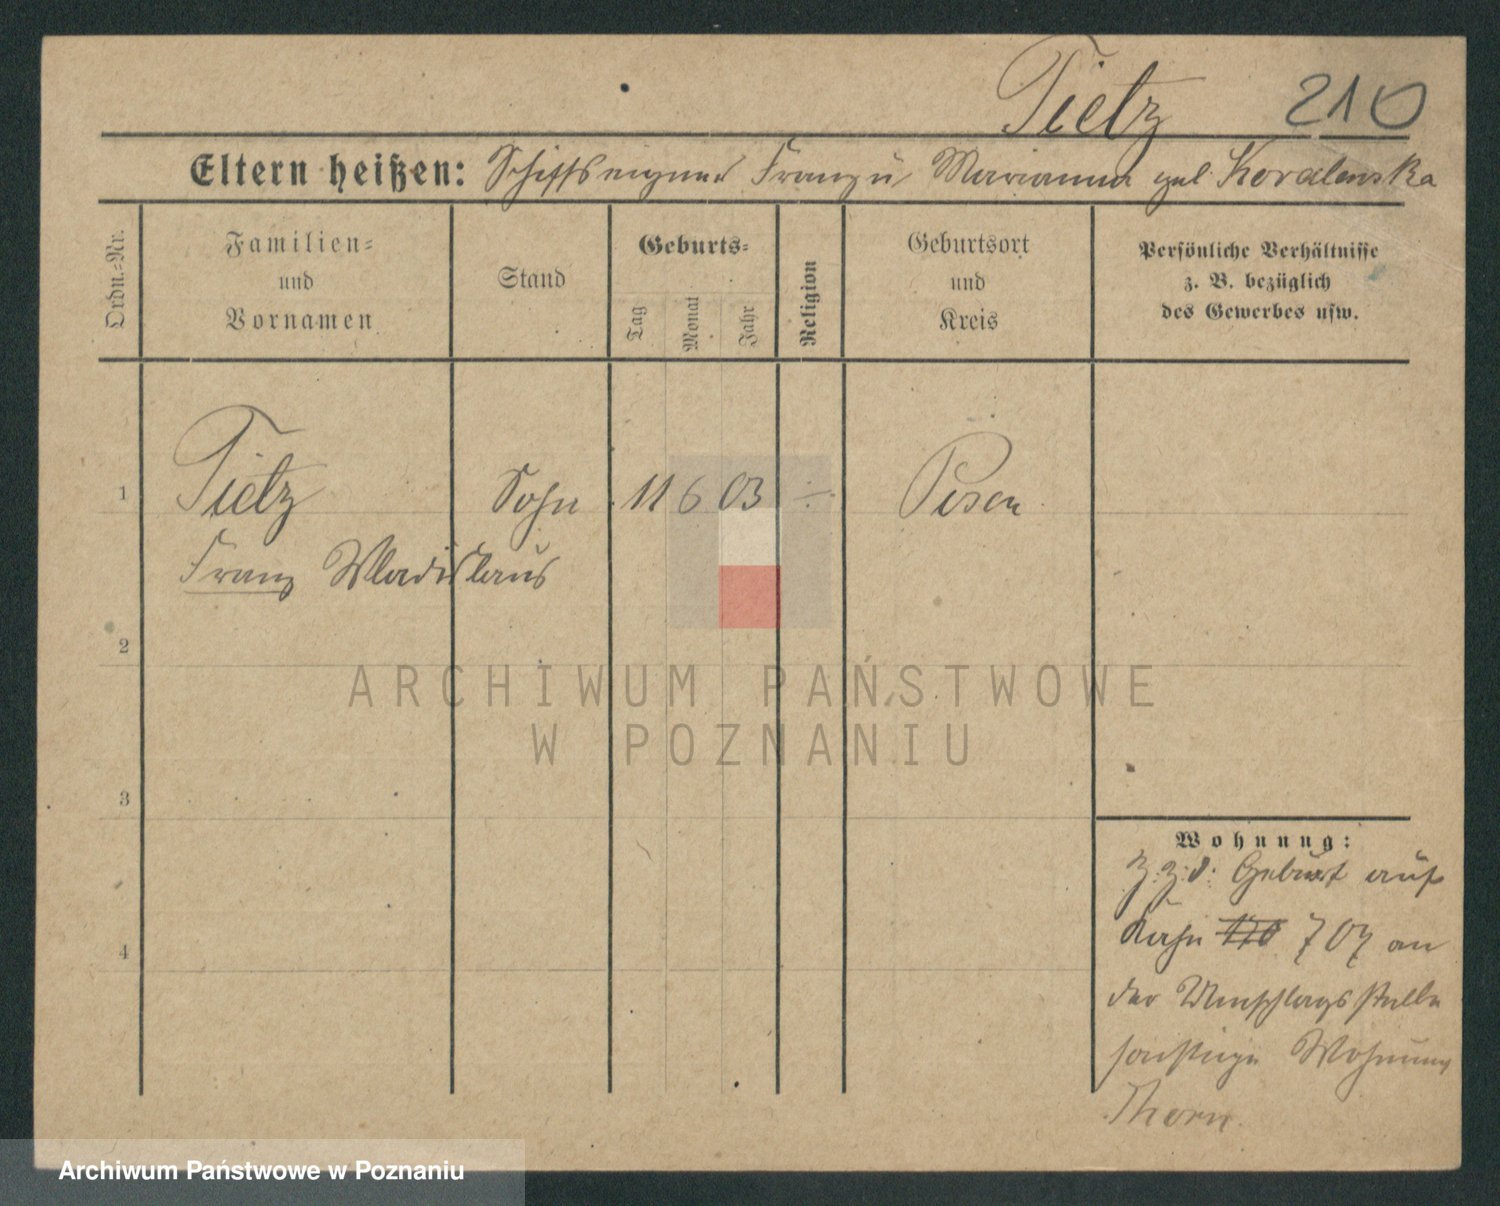 Tietz 210
Eltern heißen: Schiffseigner Franz u Marianna geb. Kovalenska
Ordn.=Nr.
Familien=
und
Vornamen
Stand
Geburts=
Tag
Monat
Jahr
Religion
Geburtsort
und
Kreis
Persönliche Verhältnisse
z. B. bezüglich
des Gewerbes usw.
1 Tietz Sohn 11 6 03 Posen
Franz Wladislaus
2
ARCHIWUM PAŃSTWOWE
W POZNANIU
3
Wohnung:
z. Z. d. Geburt auf
Kahn 707 an
der Umschlagsstelle
sonstige Wohnung
Thorn.
4
Archiwum Państwowe w Poznaniu